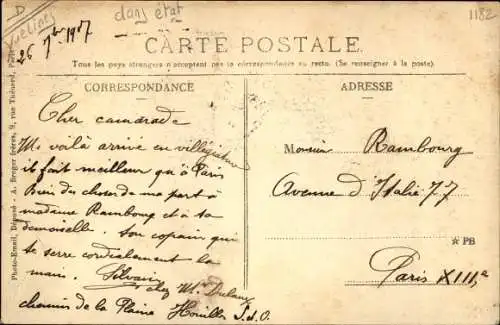 D
Yvelines
dans état
1182
26 7bre 1907
CARTE POSTALE.
Tous les pays étrangers n'acceptent pas la correspondance au recto. (Se renseigner à la poste).
CORRESPONDANCE
Cher camarade
Me voilà arrivé en villégiature
il fait meilleur qu'à Paris
Bien des choses de ma part à
madame Rambourg et à sa
demoiselle. Son copain qui
te serre cordialement la
main. Silvain
chez Mr Dulaux
chemin de la Plaine Houilles S.et.O.
ADRESSE
Monsieur Rambourg
Avenue d'Italie 77
★ PB
Paris XIIIe
Photo-Email, Déposé - A. Breger frères, 9, rue Thénard, Paris